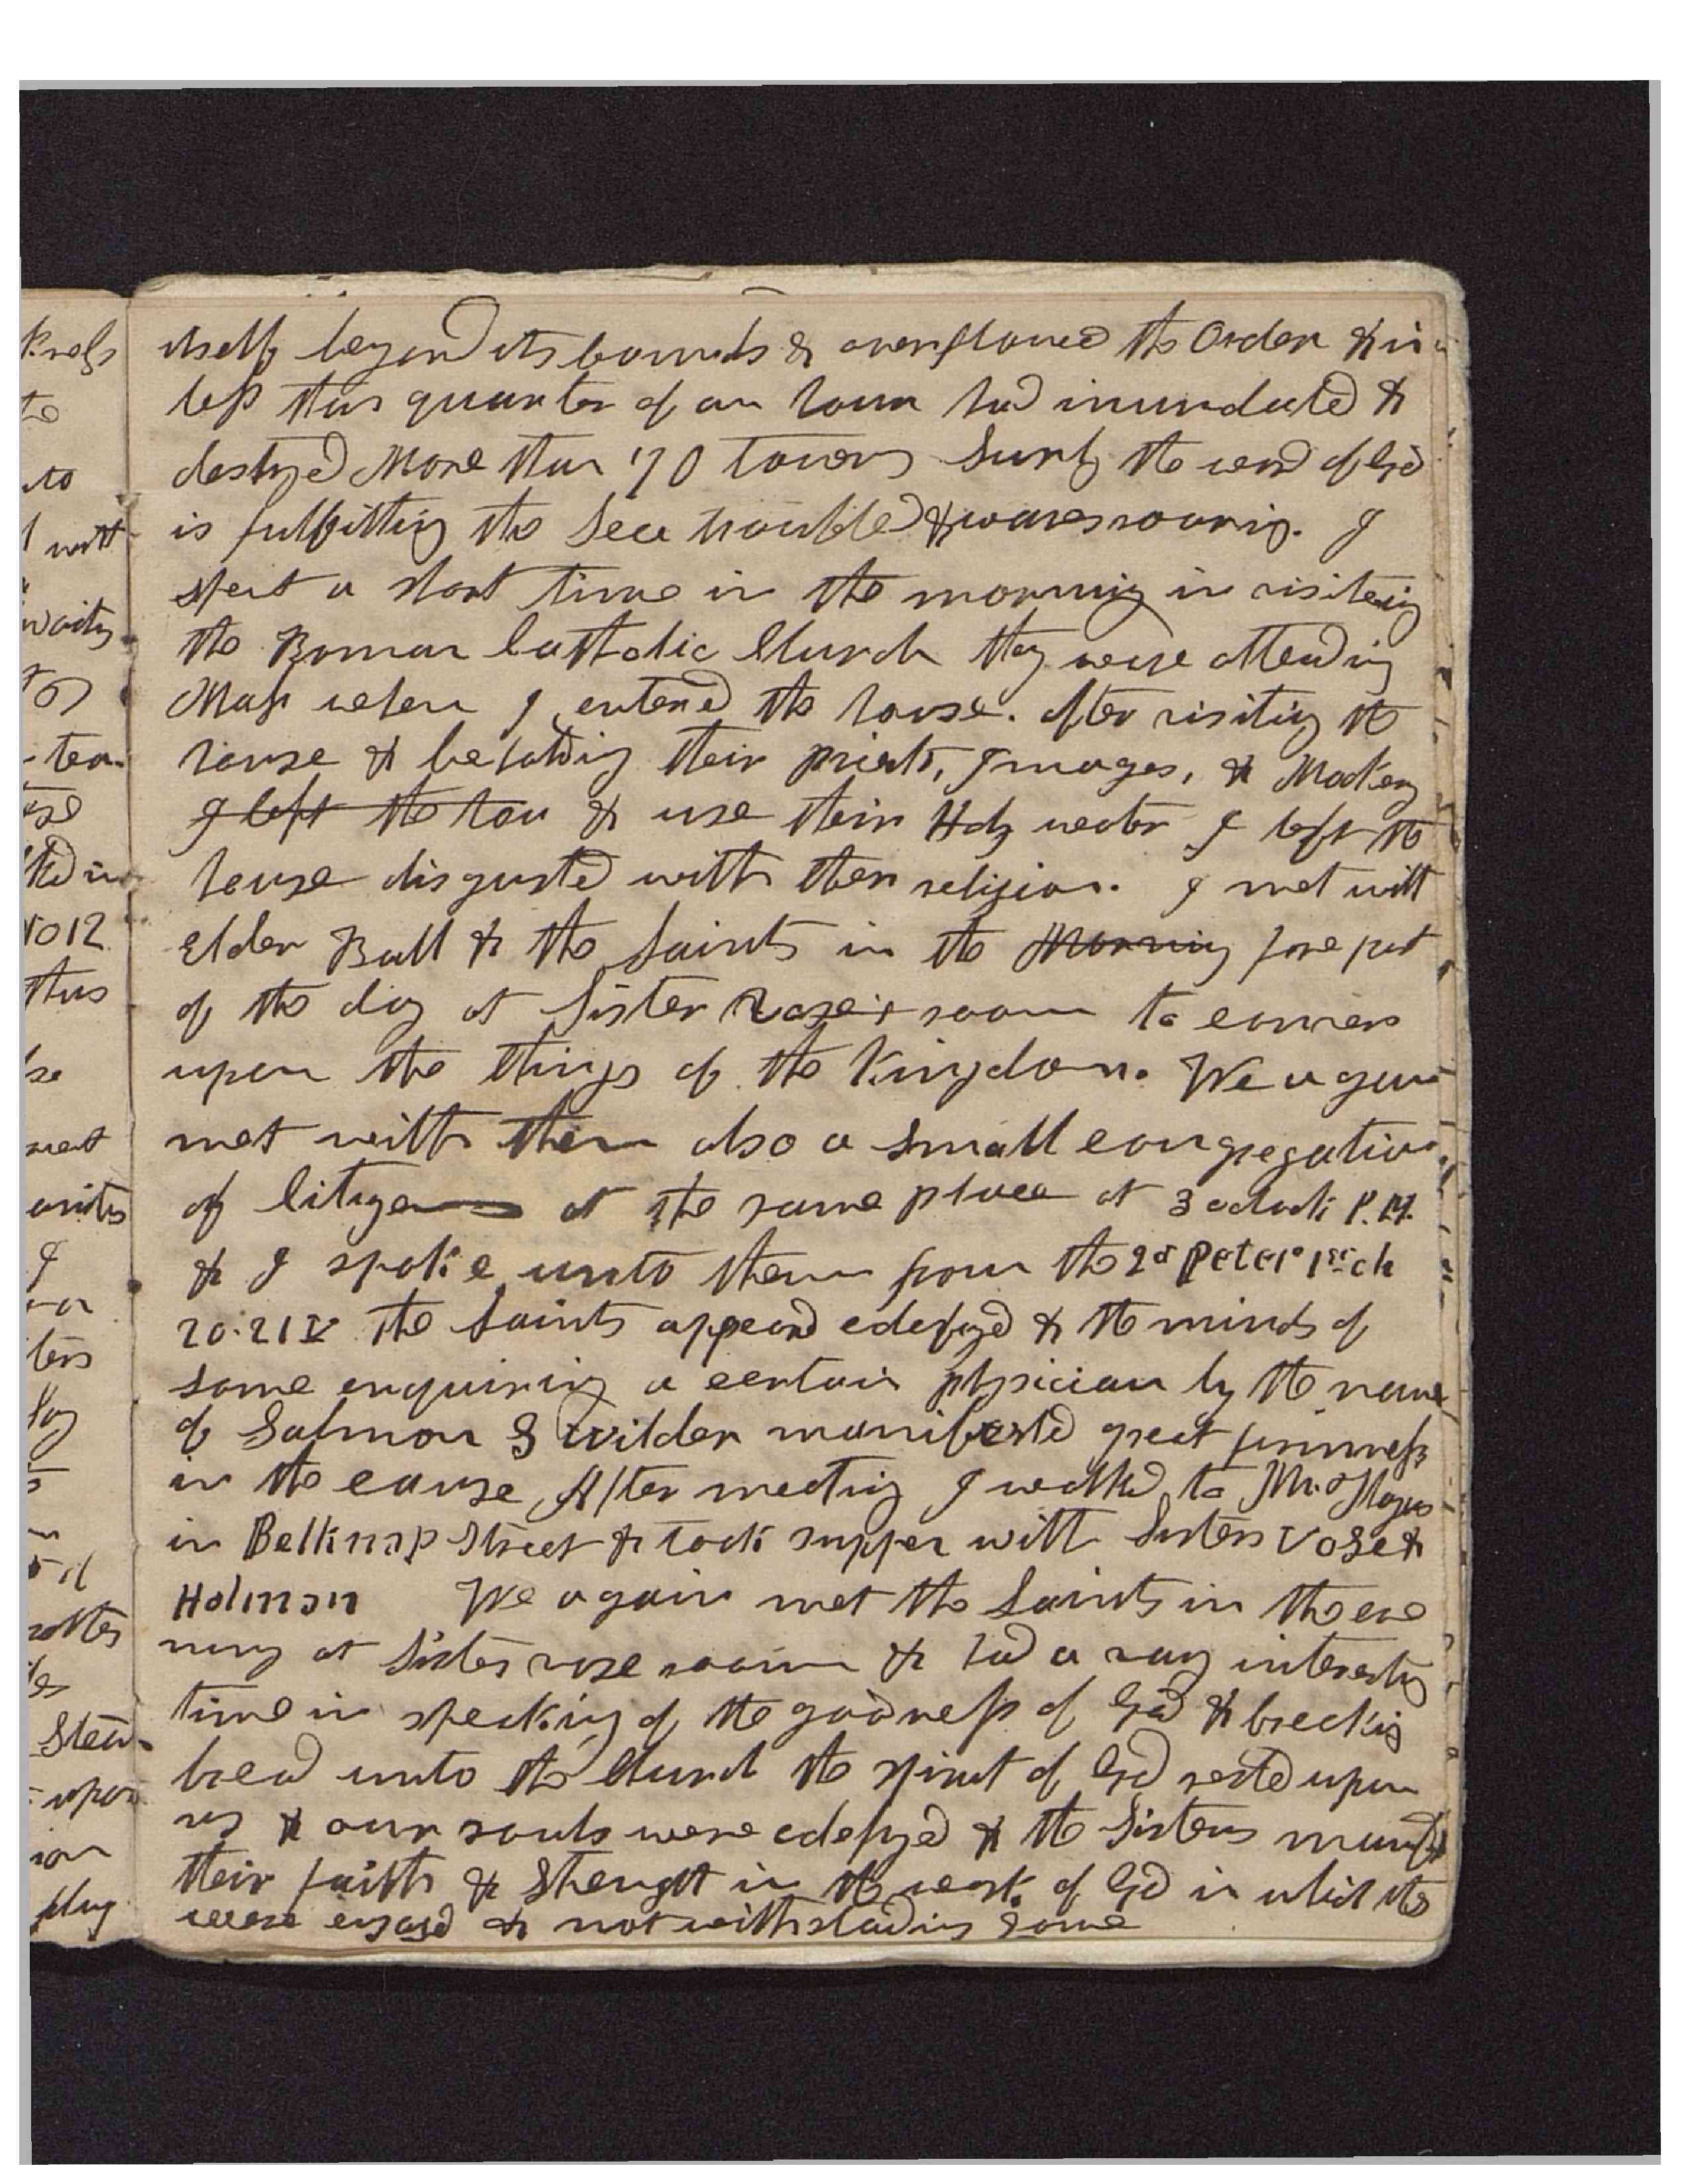 itself beyond its bounds & overflowed the Order & in
less than quarter of an hour had inundated &
destryed More than 70 towers Surly the word of God
is fulfilling the Sea troubled & waves roaring. I
spent a short time in the morning in visiteing
the Roman Catholic Church they were attending
Mass when I entered the house. After visiting the
house & beholding their priest, Images, & Mockery
I left the hou & use their Holy water I left the
house disgusted with their religion. I met with
Elder Ball & the Saints in the Morning fore part
of the day at Sister Voses room to convers
upon the things of the Kingdom. We again
met with them also a small congregation
of Citizens at the same place at 3 oclock P.M.
& I spoke unto them from the 2d Peter 1st ch
20.21 V the Saints appeard edefyed & the minds of
some enquiring a certain physician by the name
of Salmon S Wilder manifested great firmness
in the cause After meeting I walked to Mr.
in Belknap Street & took supper with Sisters Vose &
Holman We again met the Saints in the eve
ning at Sister vose room & had a vary interesting
time in speaking of the goodness of God & breaking
bread unto the Church the spirit of God rested upon
us & our souls were edefyed & the Sisters
their faith & Strength in the work of God in which the
were engaged & notwithstanding some
Prels
to
to
with
-tea
No 12
thus
se
I
Stew-
upon